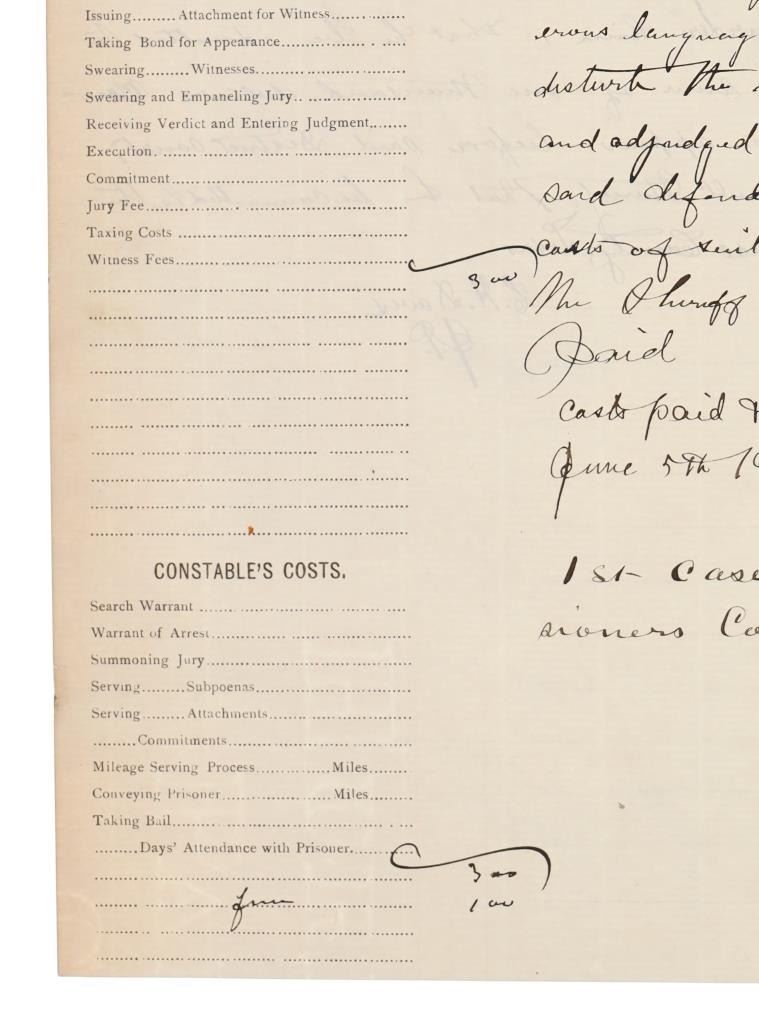 Issuing......... Attachment for Witness..................
Taking Bond for Appearance..............................
Swearing.........Witnesses..................................
Swearing and Empaneling Jury.. .........................
Receiving Verdict and Entering Judgment.........
Execution. ...................................................
Commitment................................................
Jury Fee......................................................
Taxing Costs ................................................
Witness Fees................................................
3 00
erous languag
disturb the
and adjudged
said defenda
costs of suit
The Sheriff
Paid
Costs paid
June 5th 1
1st Case
sioners Co
CONSTABLE'S COSTS.
Search Warrant ...........................................
Warrant of Arrest..........................................
Summoning Jury..........................................
Serving.........Subpoenas................................
Serving.........Attachments.............................
.........Commitments....................................
Mileage Serving Process...............Miles.........
Conveying Prisoner......................Miles.........
Taking Bail..................................................
.........Days' Attendance with Prisoner..............
3 00
fine
1 00